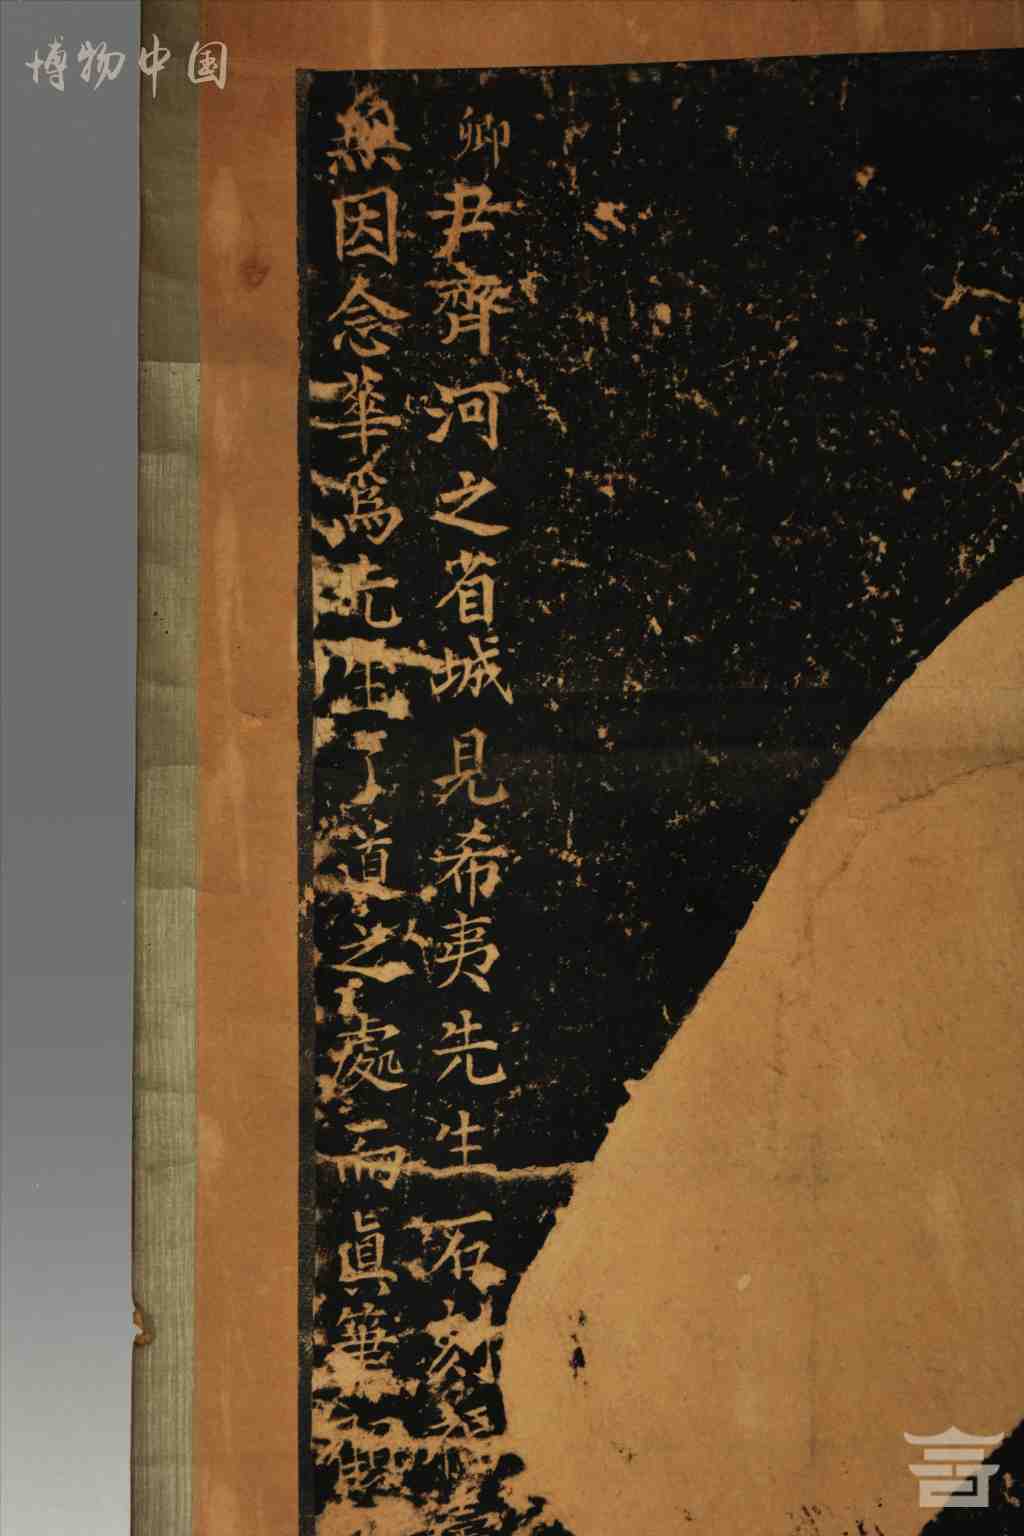 博物中国
卿尹齊河之省城見希夷先生石刻
無因念華為先生了道之處而真筆